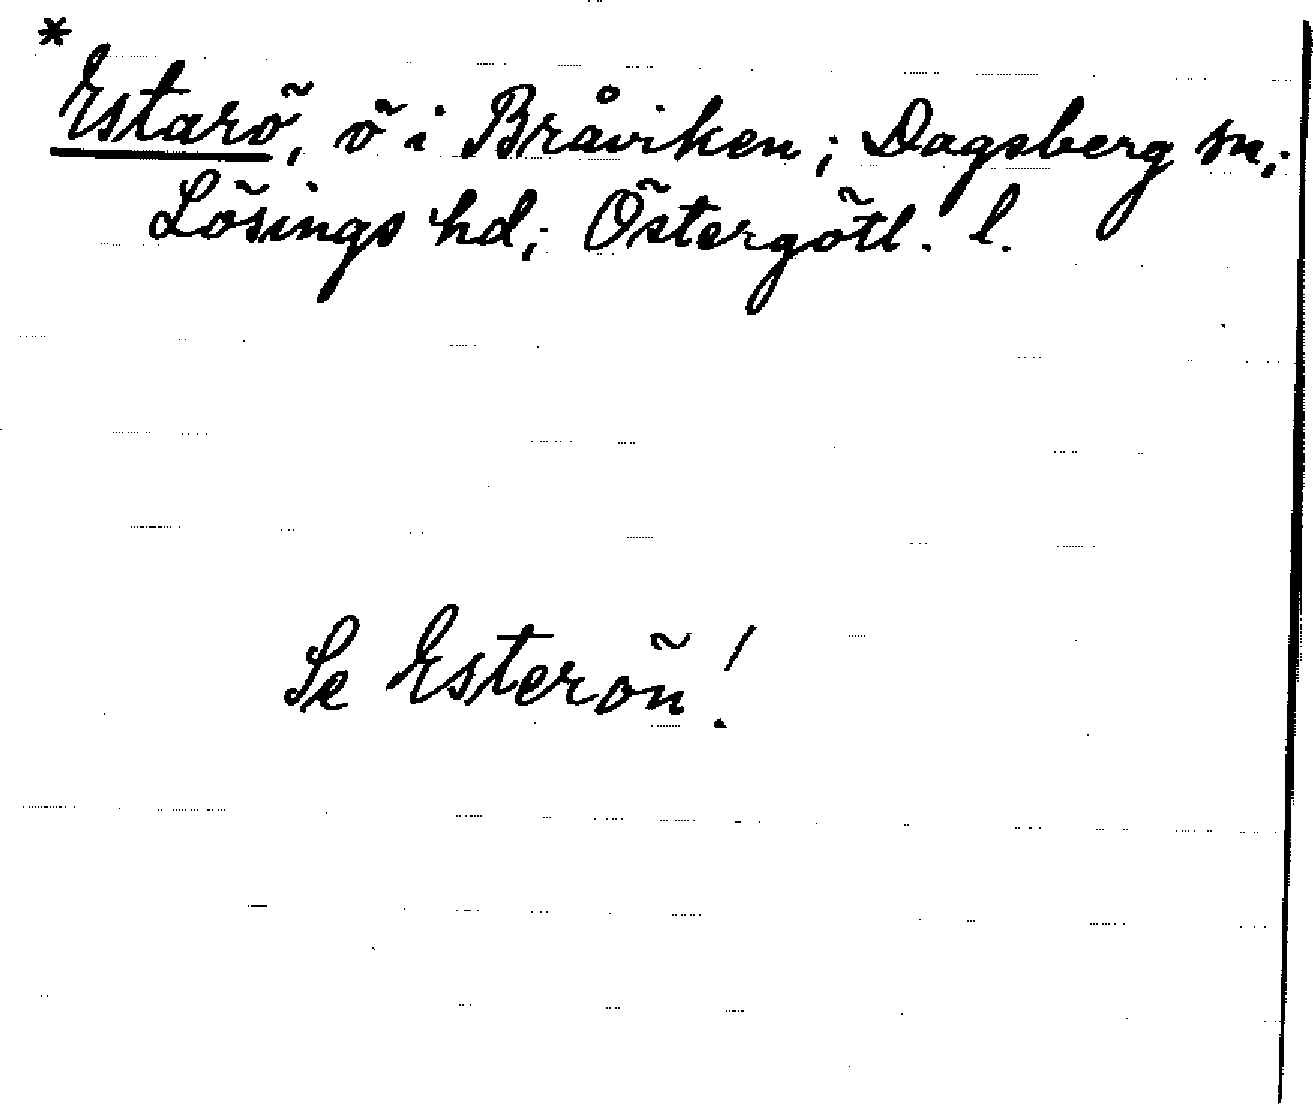 *
Estarö, ö i Bråviken; Dagsberg sn;
Lösings hd; Östergötl. l.
Se Esterön!